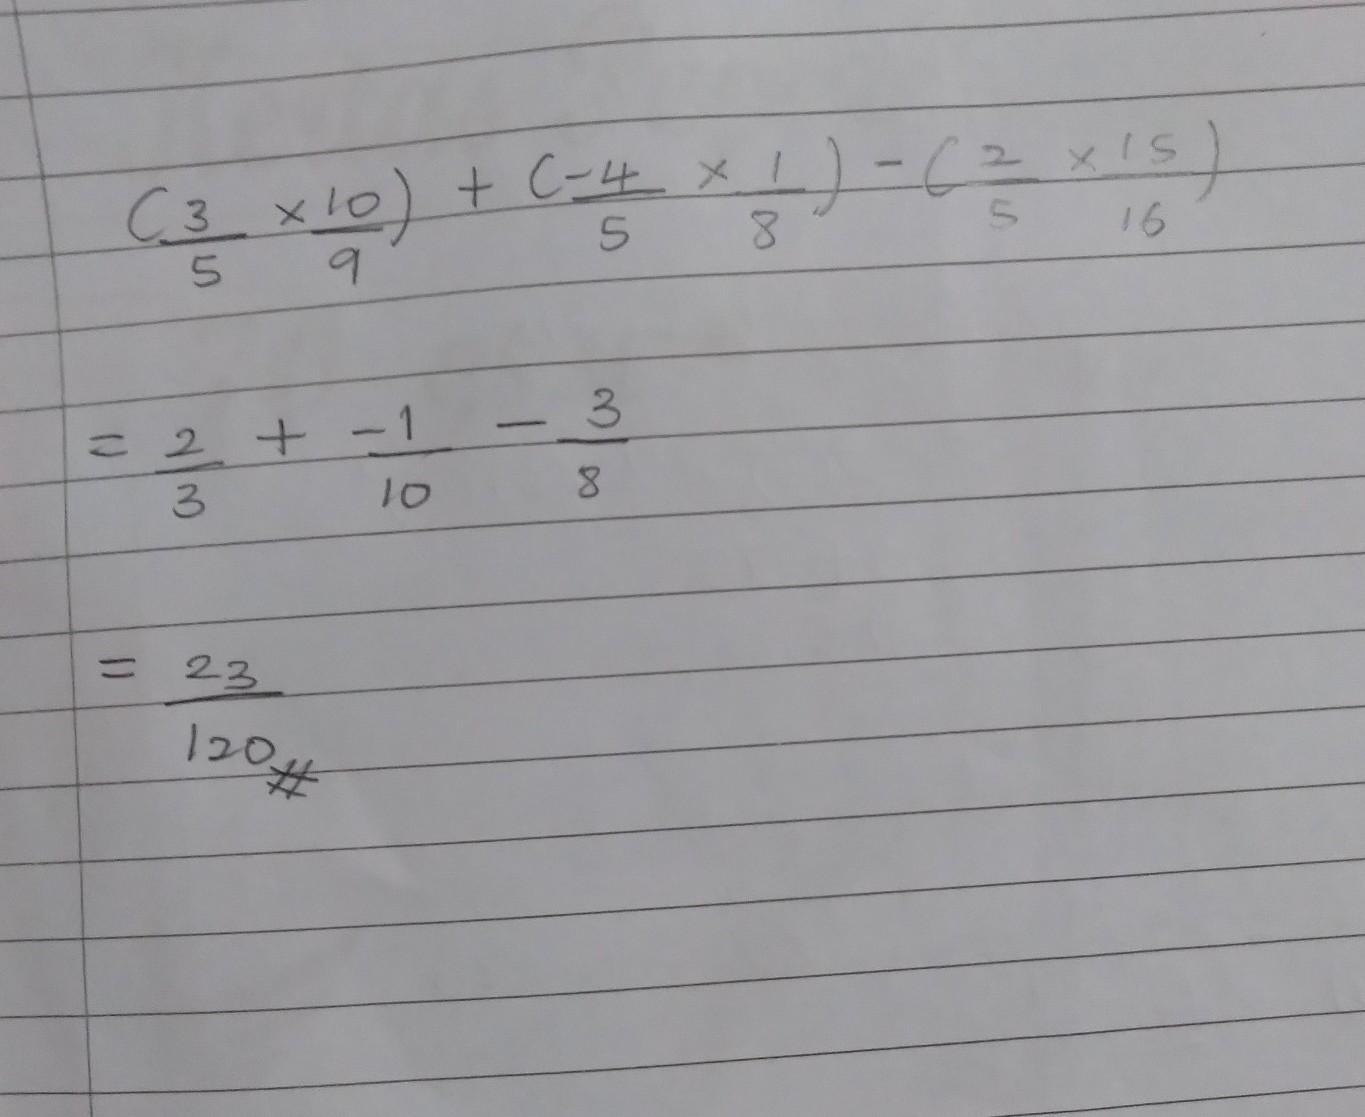 (3/5 × 10/9) + (-4/5 × 1/8) - (2/5 × 15/16)
= 2/3 + -1/10 - 3/8
= 23/120 #